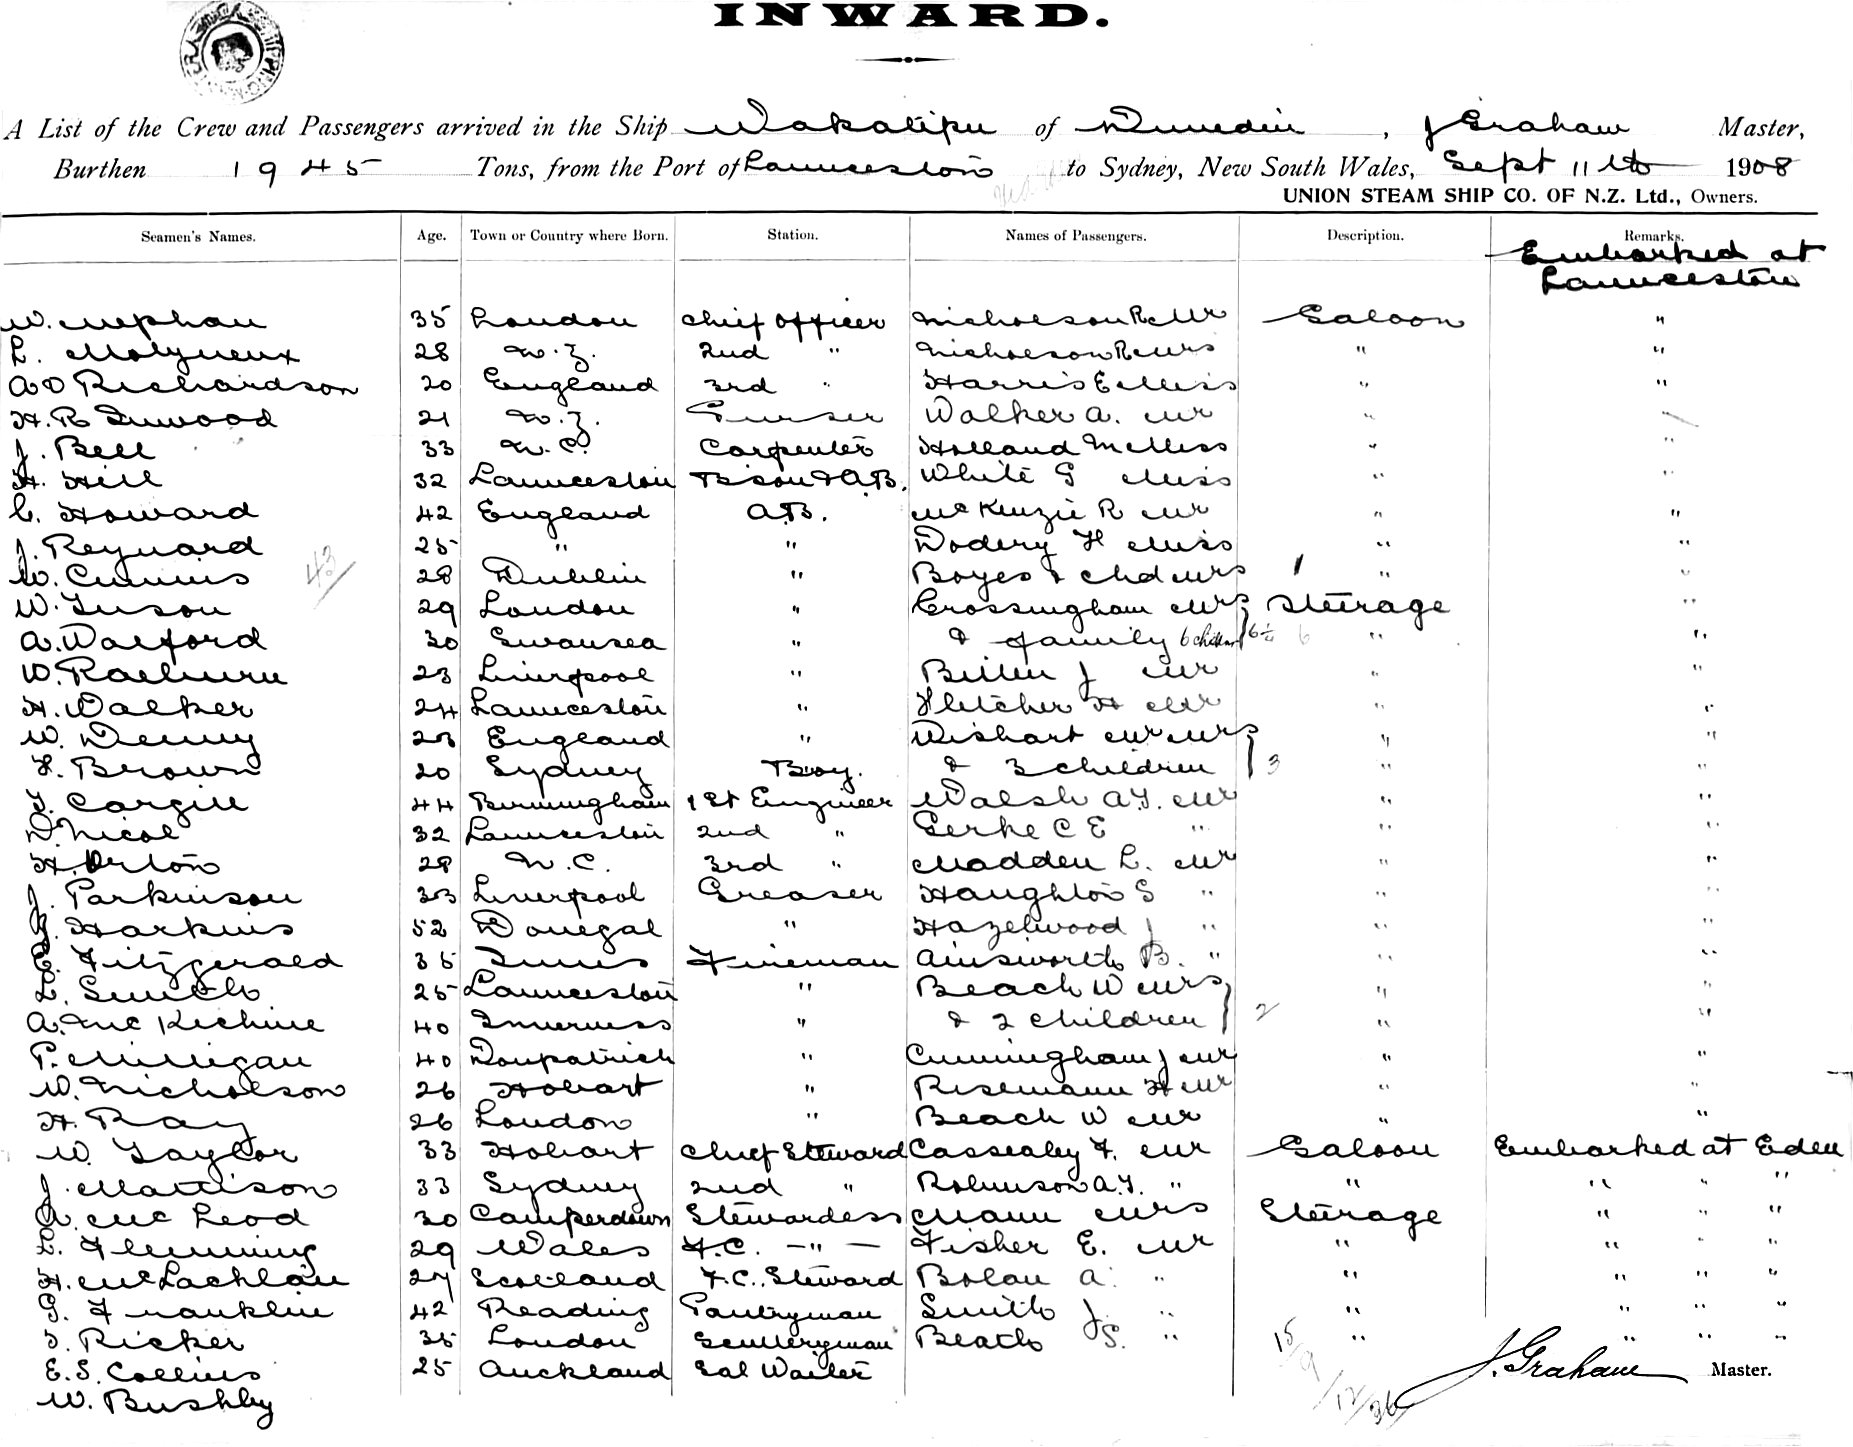 INWARD.
A List of the Crew and Passengers arrived in the Ship Wakatipu of Dunedin, J Graham Master,
Burthen 1945 Tons, from the Port of Launceston to Sydney, New South Wales, Sept 11th 1908
UNION STEAM SHIP CO. OF N.Z. Ltd., Owners.
Seamen's Names. Age. Town or Country where Born. Station. Names of Passengers. Description. Remarks.
Embarked at
Launceston
W. Mephan 35 London Chief Officer Nicholson R Mr Saloon "
L. Molyneux 28 N.Z. 2nd " Nicholson R Mrs " "
A D Richardson 20 England 3rd " Harris E Miss " "
H. R. Inwood 21 N.Z. Purser Walker A. Mr " "
J. Bell 33 N.C. Carpenter Holland M Miss " "
H. Hill 32 Launceston B'son & A.B. White G Miss " "
C. Howard 42 England A.B. McKenzie R Mr " "
J. Reynard 25 " " Dodery H Miss " "
W. Cummins 28 Dublin " Boyes & Chd Mrs 1 " "
W. Tuson 29 London " Crossingham Mrs Steerage "
A. Walford 30 Swansea " & family 6 children 6 " "
W. Raeburn 23 Liverpool " J Mr " "
H. Walker 24 Launceston " Fletcher H Mr " "
W. Denny 23 England " Wishart Mr Mrs " "
F. Brown 20 Sydney Boy. & 3 children 3 " "
T. Cargill 44 Birmingham 1st Engineer Walsh A.T. Mr " "
D. Nicol 32 Launceston 2nd " Gerke C E " " "
H. Orton 28 N.C. 3rd " Madden L. Mr " "
J. Parkinson 33 Liverpool Greaser Haughton S " " "
Harkins 52 Donegal " Hazelwood J " " "
E. Fitzgerald 35 Fireman Ainsworth B. " " "
L. Smith 25 Launceston " Beach W Mrs " "
A. McKechnie 40 Inverness " & 2 children 2 " "
P. Milligan 40 Donpatrick " Cunningham J Mr " "
W. Nicholson 26 Hobart " Risemann H Mr " "
H. Ray 26 London " Beach W Mr " "
W. Taylor 33 Hobart Chief Steward Cassealey F. Mr Saloon Embarked at Eden
J. Mattison 33 Sydney 2nd " Robinson A.T. " " " " "
A. McLeod 30 Camperdown Stewardess Mann Mrs Steerage " " "
L. Flemming 29 Wales F.C. — " — Fisher E. Mr " " " "
H. McLachlan 27 Scotland F.C. Steward Bolan A. " " " " "
G. Franklin 42 Reading Pantryman Smith J. " " " " "
T. Ricker 35 London Sculleryman Beath S. " " " " "
E. S. Collins 25 Auckland Sal Waiter J. Graham Master.
W. Bushby